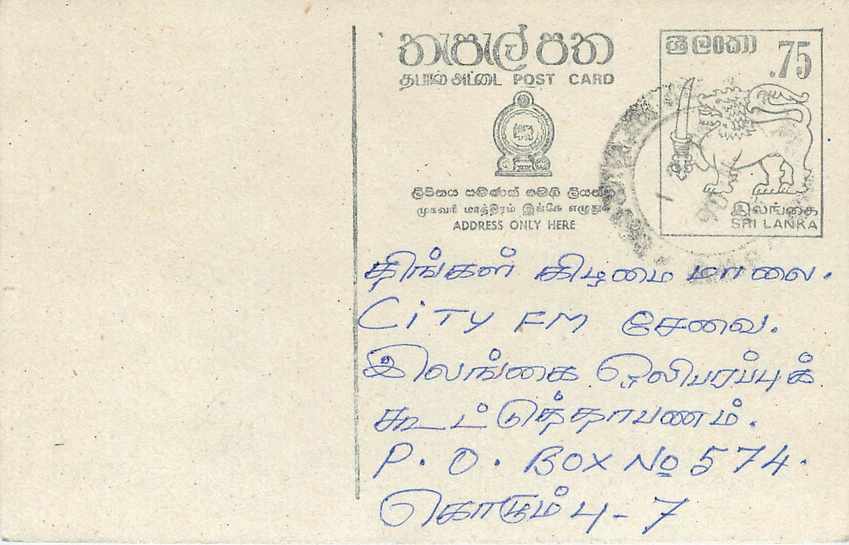 තැපැල් පත
தபால் அட்டை POST CARD
ලිපිනය පමණක් මෙහි ලියන්න
முகவரி மாத்திரம் இங்கே எழுதுக
ADDRESS ONLY HERE
ශ්‍රී ලංකා
.75
இலங்கை
SRI LANKA
திங்கள் கிழமை மாலை.
CITY FM சேவை.
இலங்கை ஒலிபரப்புக்
கூட்டுத்தாபணம்.
P. O. BOX No 574.
கொழும்பு - 7